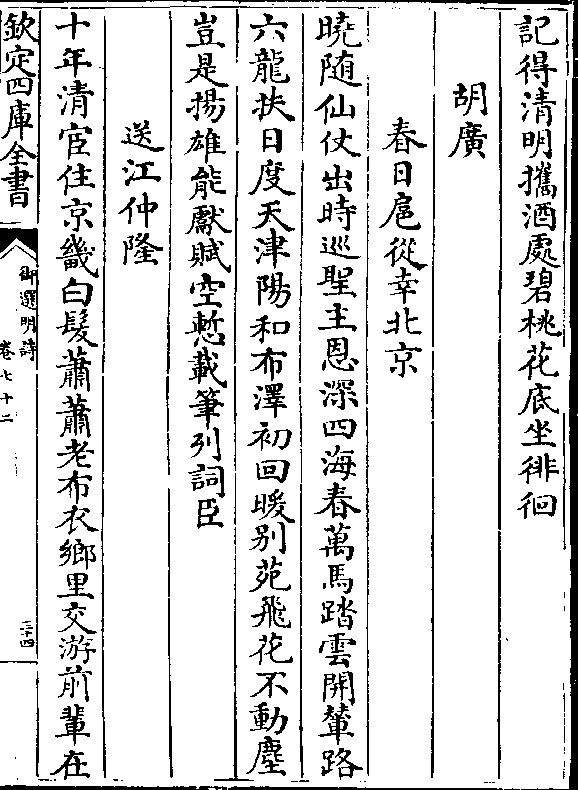 記得清明攜酒處碧桃花底坐徘徊
胡廣
春日扈從幸北京
曉随仙仗出時巡聖主恩深四海春萬馬踏雲開輦路
六龍扶日度天津陽和布澤初回暖别苑飛花不動塵
豈是揚雄能獻賦空慙載筆列詞臣
送江仲隆
十年清宦住京畿白髮蕭蕭老布衣鄉里交游前輩在
欽定四庫全書
御選明詩
卷七十二
三十四